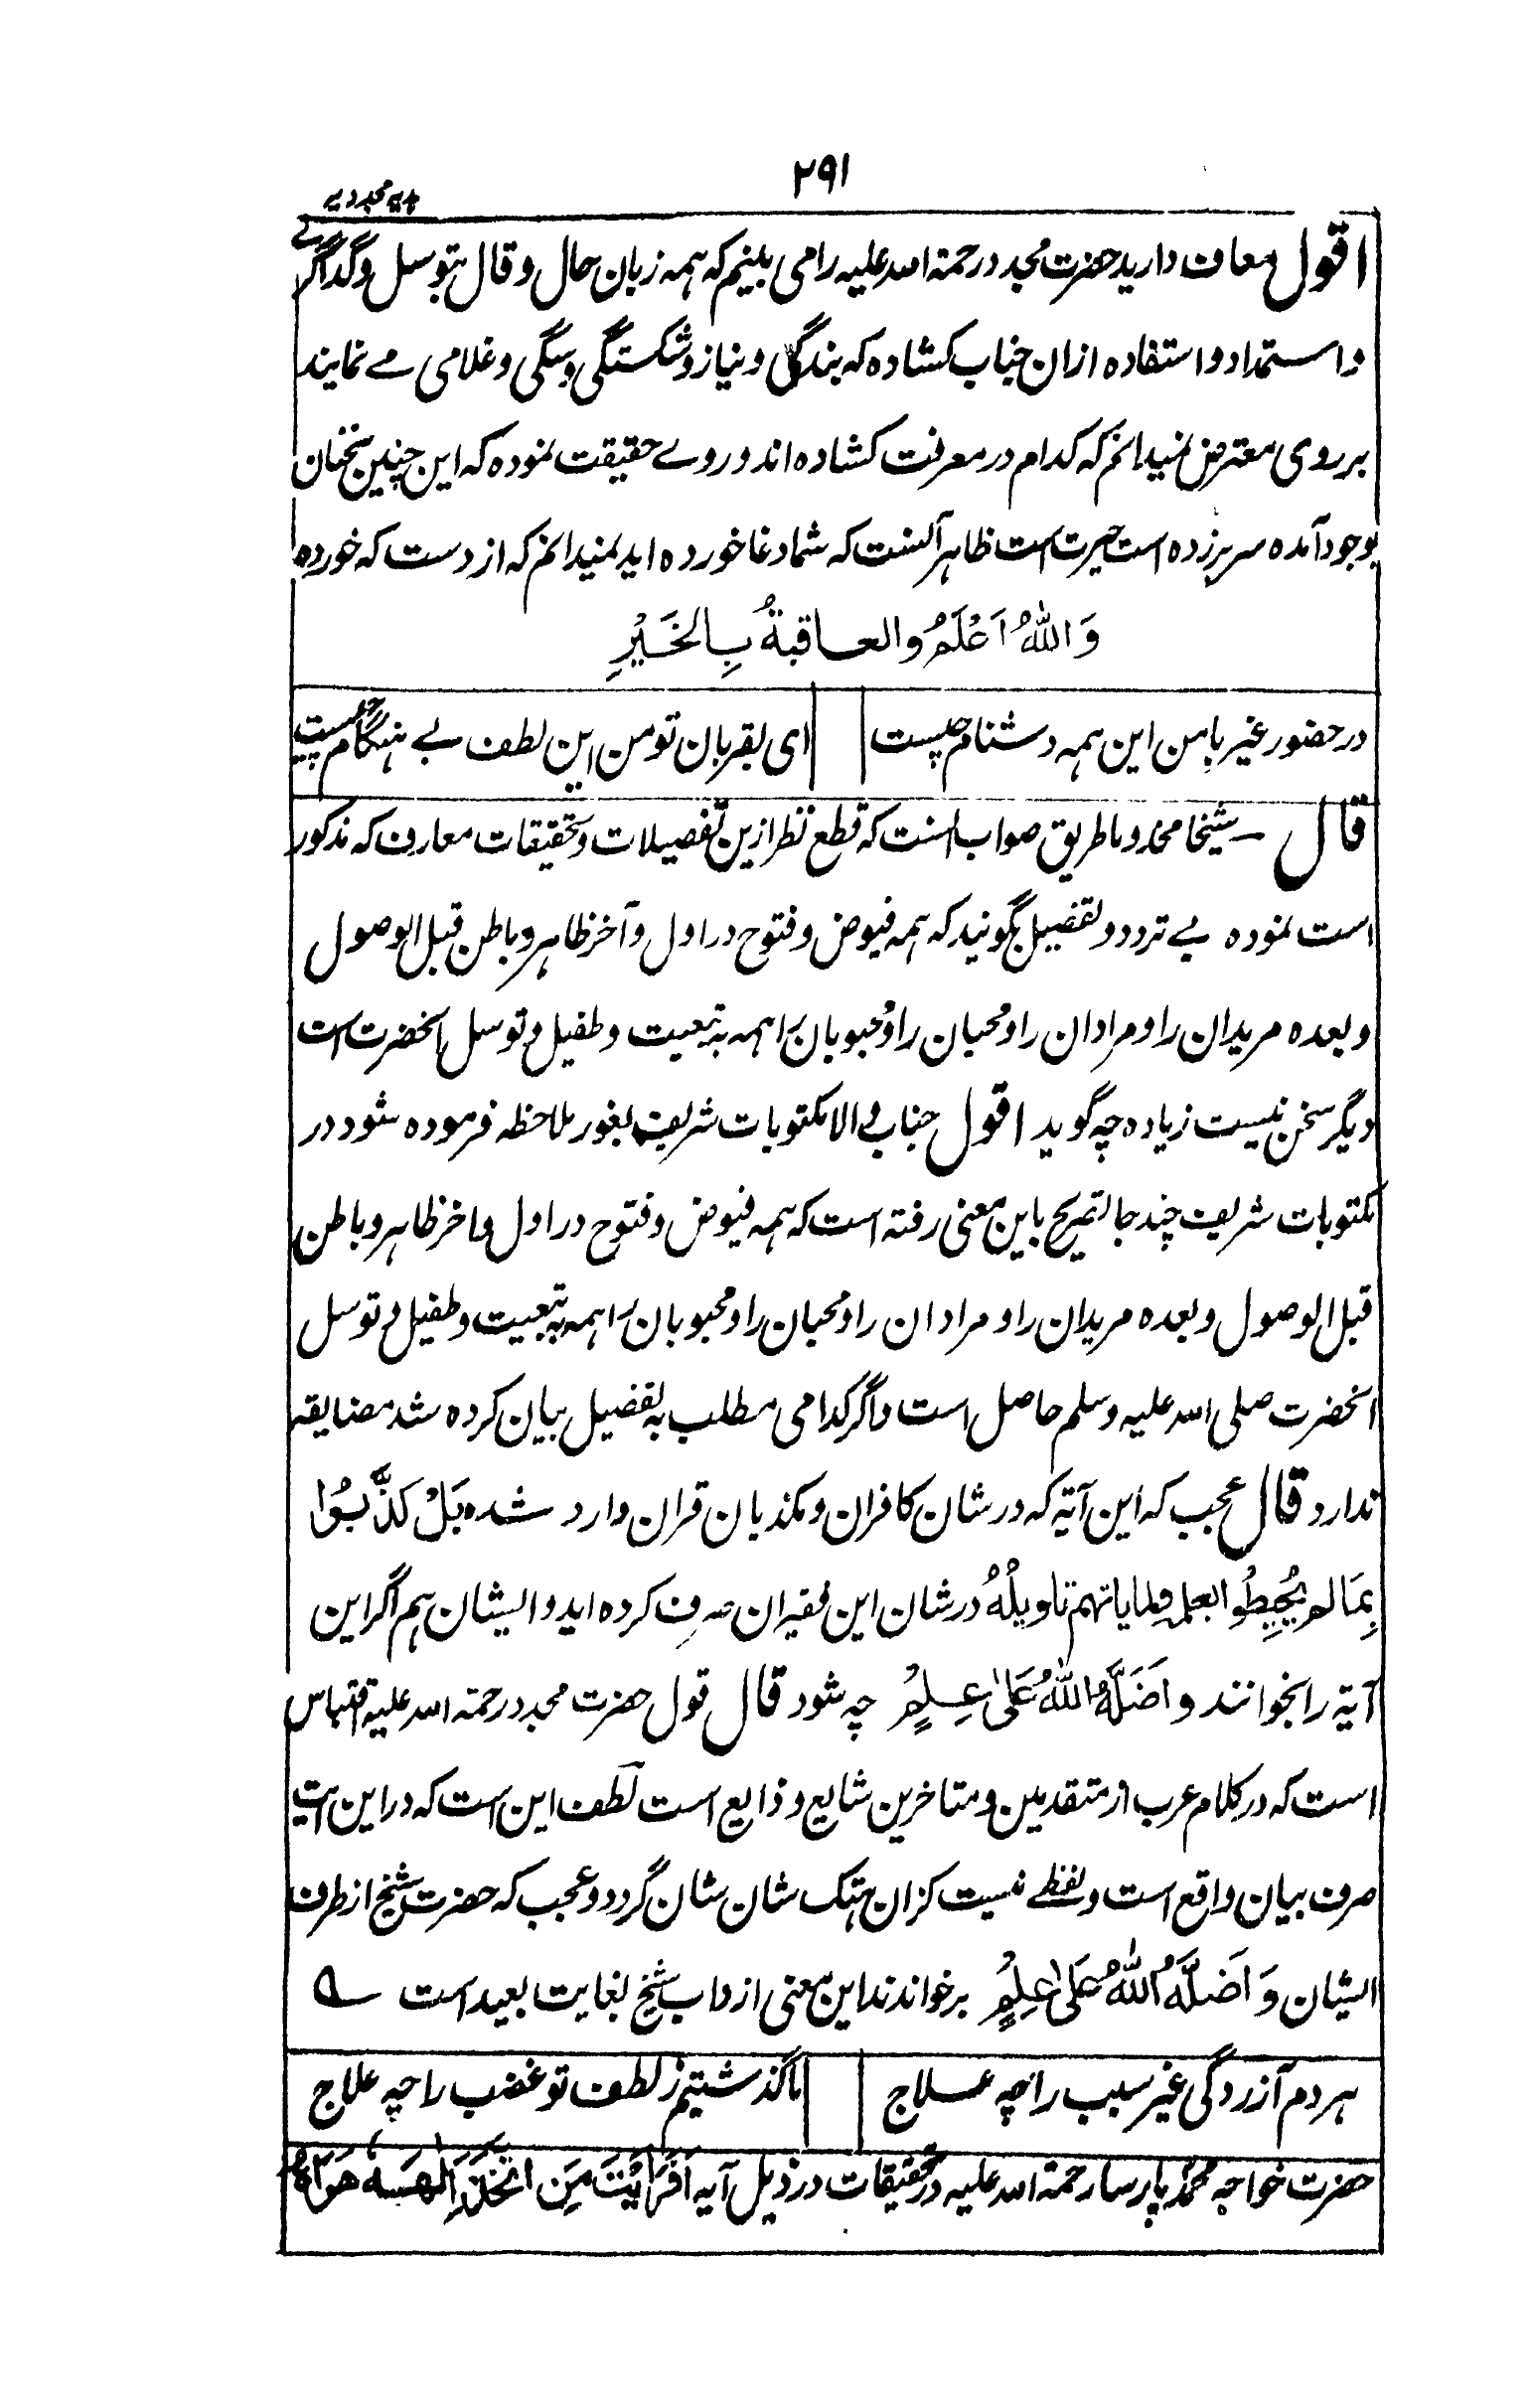 ۲۹۱
ہدیہ مجددیہ
اقول معاف دارید حضرت مجدد رحمة اللہ علیہ را می بینیم کہ ہمہ زبان حال و قال بتوسل و گداگرے
و استمداد و استفادہ ازان جناب کشادہ کہ بندگی و نیاز و شکستگی و سگی و غلامی مے نمایند
بر روی معترض نمیدانم کہ کدام در معرفت کشادہ اند و روے حقیقت نمودہ کہ این چنین سخنان
بوجود آمدہ سر بر زدہ است حیرت است ظاہر آنست کہ شما دغا خوردہ اید نمیدانم کہ از دست کہ خوردہ
وَاللّٰہُ اَعْلَمُ والعاقبةُ بِالخَیْرِ
در حضور غیر با من این ہمہ دشنام چیست
ای بقربان تو من این لطف بے ہنگام چیست
قال ــ شیخا مخدوما طریق صواب آنست کہ قطع نظر ازین تفصیلات و تحقیقات معارف کہ مذکور
است نمودہ بے تردد و تفصیل بگویند کہ ہمہ فیوض و فتوح در اول و آخر ظاہر و باطن قبل الوصول
و بعدہ مریدان را و مرادان را و محبان را و محبوبان را ہمہ بہ تبعیت و طفیل و توسل آنحضرت است
دیگر سخن نیست زیادہ چہ گوید اقول جناب والا مکتوبات شریف بغور ملاحظہ فرمودہ شود در
مکتوبات شریف چند جا تصریح باین معنی رفتہ است کہ ہمہ فیوض و فتوح در اول و اخر ظاہر و باطن
قبل الوصول و بعدہ مریدان را و مرادان را و محبان را و محبوبان را ہمہ بہ تبعیت و طفیل و توسل
آنحضرت صلی اللہ علیہ وسلم حاصل است و اگر کدامی مطلب بہ تفصیل بیان کردہ شد مضایقہ
ندارد قال عجب کہ این آیة کہ در شان کافران و مکذبان قران وارد شدہ بَلْ کَذَّبُوْا
بِمَا لم یُحِیطُوا بعلمہ ولما یاتہم تاویلُہُ در شان این فقیران صرف کردہ اید و ایشان ہم اگر این
آیة را بخوانند و اَضَلَّہُ اللّٰہُ عَلیٰ عِلمٍ چہ شود قال قول حضرت مجدد رحمة اللہ علیہ اقتباس
است کہ در کلام عرب از متقدمین و متاخرین شایع و ذایع است لطف این است کہ در این آیت
صرف بیان واقع است و لفظے نیست کزان ہتک شان شان گردد و عجب کہ حضرت شیخ از طرف
ایشان وَ اَضَلَّہُ اللّٰہُ عَلیٰ عِلمٍ برخواندند این معنی از داب شیخ بغایت بعید است
ہر دم آزردگی غیر سبب را چہ علاج
ما گذشتیم ز لطف تو غضب را چہ علاج
حضرت خواجہ محمد پارسا رحمة اللہ علیہ در تحقیقات در ذیل آیہ اَفَرَأَیْتَ مَنِ اتَّخَذَ اِلٰھَہٗ ھَوَاہُ